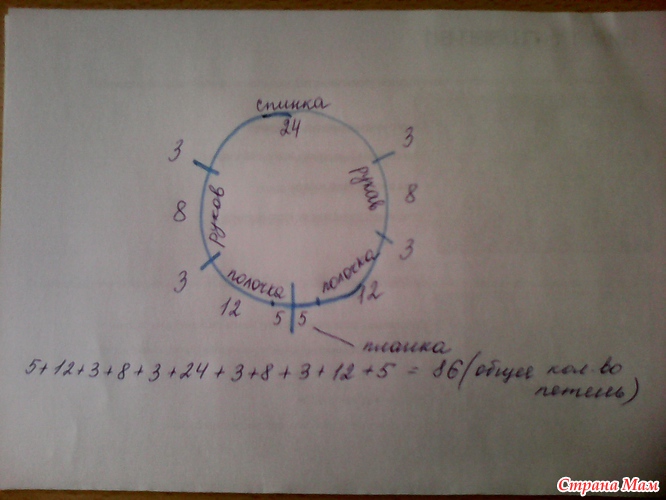 спинка
24
3
3
8
рукав
рукав
8
3
3
полочка
полочка
12
12
5
5
планка
5+12+3+8+3+24+3+8+3+12+5 = 86 (общее кол-во
петель)
Страна Мам